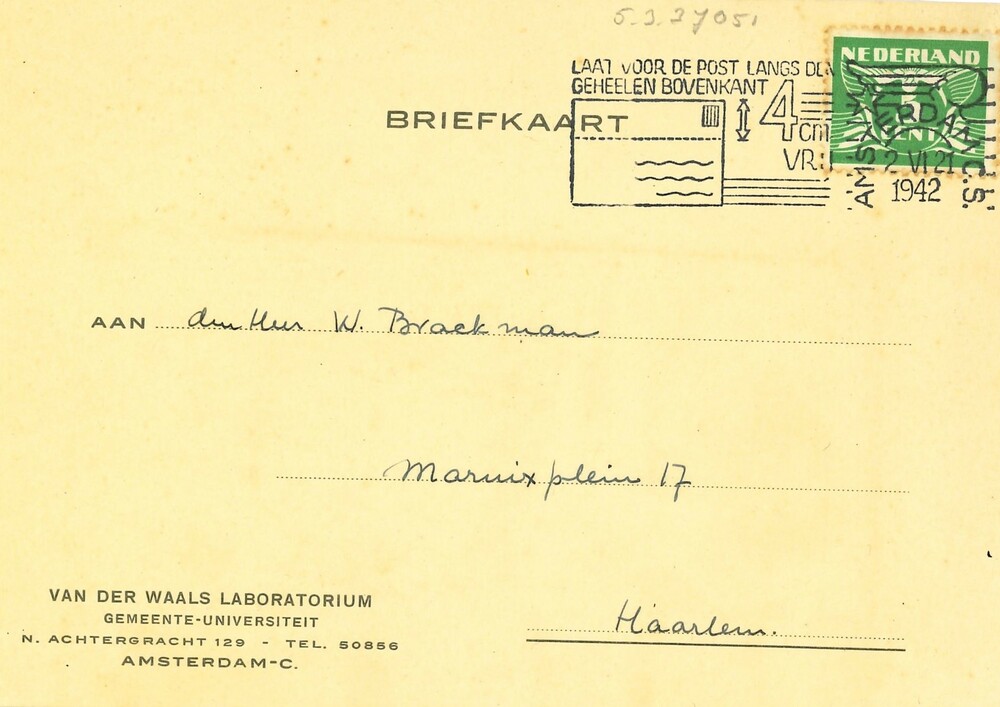 5.3.37051
LAAT VOOR DE POST LANGS DEN
GEHEELEN BOVENKANT
4 cm
VRIJ
NEDERLAND
5
CENT
AMSTERDAM C.S.
2 VI 21
1942
BRIEFKAART
AAN den Heer W. Braekman
Marnixplein 17
Haarlem.
VAN DER WAALS LABORATORIUM
GEMEENTE-UNIVERSITEIT
N. ACHTERGRACHT 129 - TEL. 50856
AMSTERDAM-C.